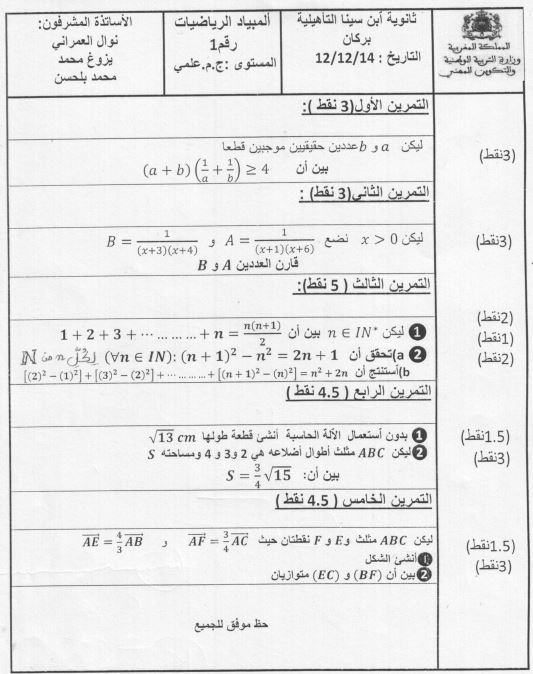 المملكة المغربية
وزارة التربية الوطنية
والتكوين المهني
ثانوية أبن سينا التأهيلية
بركان
التاريخ : 12/12/14
ألمبياد الرياضيات
رقم1
المستوى :ج.م.علمي
الأساتذة المشرفون:
نوال العمراني
يزوغ محمد
محمد بلحسن
التمرين الأول(3 نقط ):
(3نقط)
ليكن a و b عددين حقيقيين موجبين قطعا
بين أن (a + b)(1/a + 1/b) ≥ 4
التمرين الثاني(3 نقط) :
(3نقط)
ليكن x > 0 نضع A = 1/((x+1)(x+6)) و B = 1/((x+3)(x+4))
قارن العددين A و B
التمرين الثالث ( 5 نقط):
(2نقط)
❶ ليكن n ∈ IN* بين أن 1 + 2 + 3 + ⋯ … … … + n = n(n+1)/2
(1نقط)
❷ a)تحقق أن (∀n ∈ IN): (n + 1)² − n² = 2n + 1 لكل n من ℕ
(2نقط)
b)أستنتج أن [(2)² − (1)²] + [(3)² − (2)²] + ⋯ … … … + [(n + 1)² − (n)²] = n² + 2n
التمرين الرابع ( 4.5 نقط )
(1.5نقط)
❶ بدون أستعمال الآلة الحاسبة أنشئ قطعة طولها √13 cm
(3نقط)
❷ليكن ABC مثلث أطوال أضلاعه هي 2 و3 و 4 ومساحته S
بين أن: S = 3/4 √15
التمرين الخامس ( 4.5 نقط )
ليكن ABC مثلث و E و F نقطتان حيث AF = 3/4 AC و AE = 4/3 AB
(1.5نقط)
❶أنشئ الشكل
(3نقط)
❷بين أن (BF) و (EC) متوازيان
حظ موفق للجميع